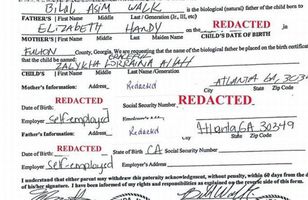 Bilal Asim Walk is the biological (natural) father of the child born to
FATHER'S First Name Middle Last / Generation (Jr., III, etc)
Elizabeth Handy REDACTED
MOTHER'S First Name Middle Last CHILD'S DATE OF BIRTH
Fulton County, Georgia. We are requesting that the name of the biological father be placed on the birth certificate
that the child's
Zalykha Graceful Lorraina Allah
CHILD'S First Name Middle Last Name/Generation
Mother's Information: Redacted Atlanta GA, 303
Address City State Zip Code
Date of Birth: REDACTED Social Security Number REDACTED
Employer self-employed Employer's Address
Father's Information: Redacted Atlanta GA 30349
Address City State Zip Code
Date of Birth: REDACTED State of Birth: CA Social Security Number
Employer self-employed Employer's Address
I understand that either parent may withdraw this paternity acknowledgment, without penalty, within 60 days from the d
of his/her signature. I have been informed of my rights and responsibilities as explained on the